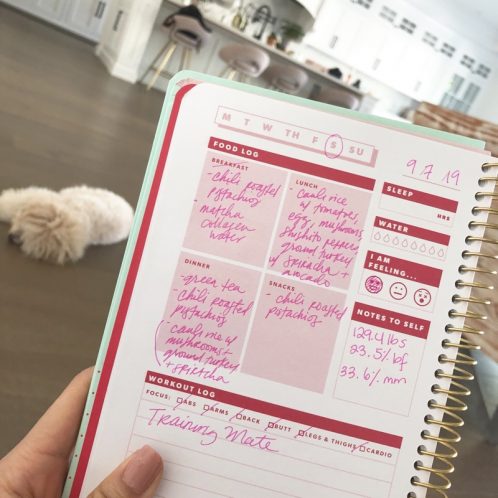 M T W TH F S SU
9.7.19
FOOD LOG
BREAKFAST
- chili roasted
pistachios
- matcha
collagen
water
LUNCH
- cauli rice
w/ tomatoes,
egg, mushrooms
shishito peppers
ground turkey
w/ sriracha +
avocado
DINNER
- green tea
- chili roasted
pistachios
(cauli rice w/
mushrooms +
ground turkey
+ sriracha
SNACKS
- chili roasted
pistachios
SLEEP
HRS
WATER
I AM
FEELING...
NOTES TO SELF
129.4 lbs
33.5% bf
33.6% mm
WORKOUT LOG
FOCUS: ABS ARMS BACK BUTT LEGS & THIGHS CARDIO
Training Mate